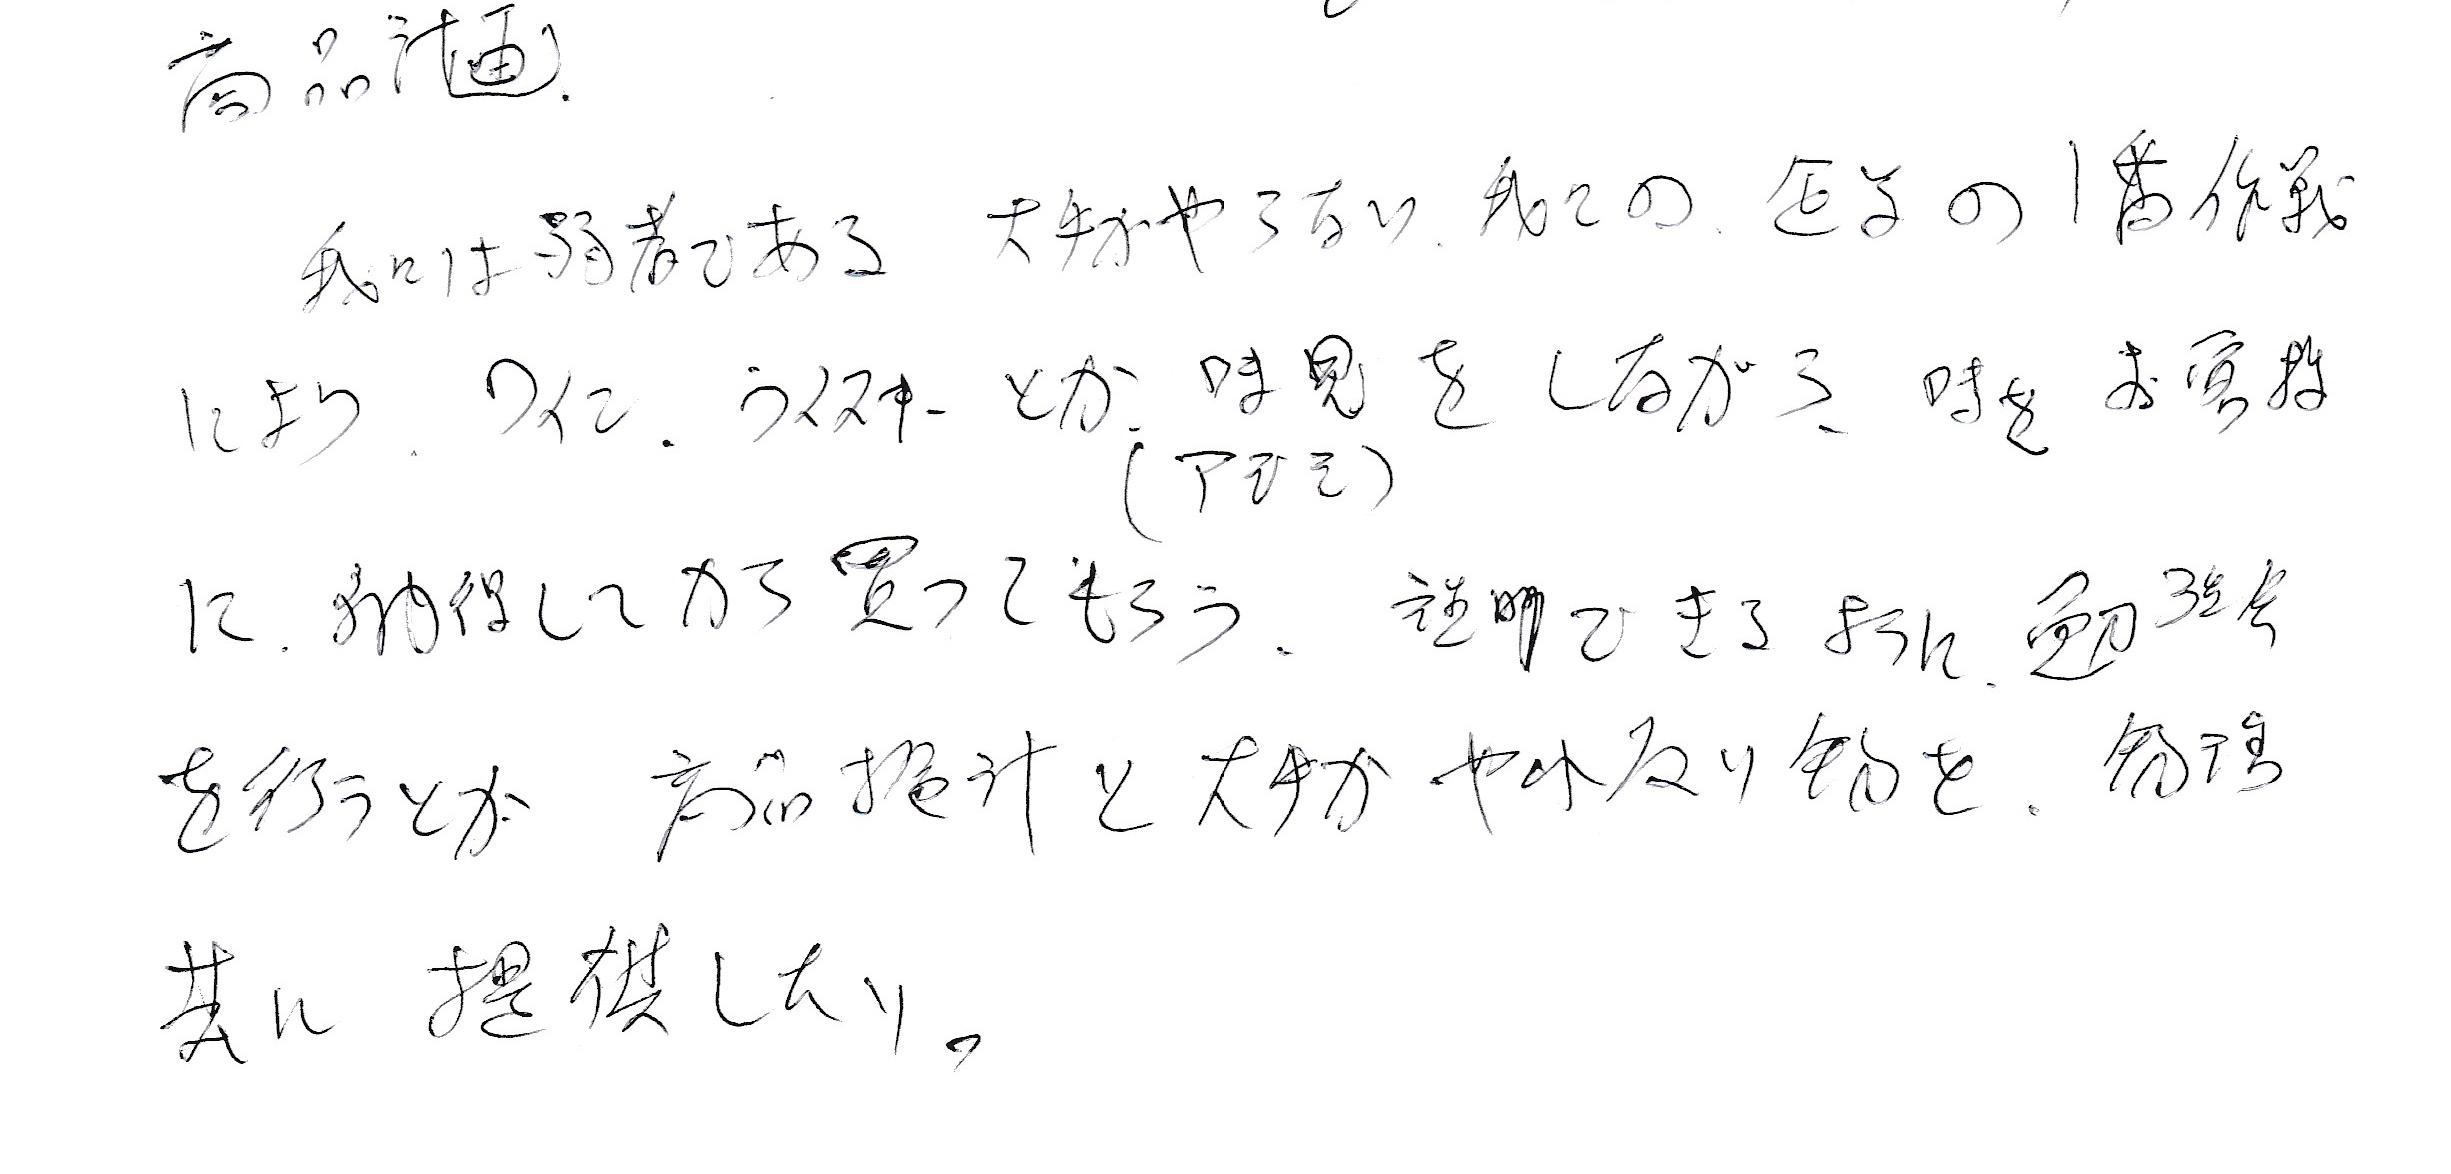 商品計画.
我々は弱者である 大手がやらない. 我々の. 企業の1番作戦
により. ワイン. ウイスキーとか. 味見をしながら、味をお客様
(アジミ)
に. 納得してから買ってもらう. 説明できるように. 勉強会
を行うとか 商品 計と大手が やれない 物を.
共に 提供したい。